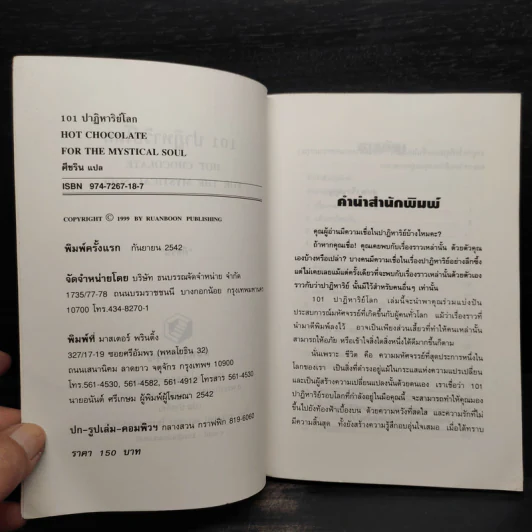 101 ปาฏิหาริย์โลก
HOT CHOCOLATE
FOR THE MYSTICAL SOUL
ศีขริน แปล
ISBN 974-7267-18-7
COPYRIGHT © 1999 BY RUANBOON PUBLISHING
พิมพ์ครั้งแรก กันยายน 2542
จัดจำหน่ายโดย บริษัท ธนบรรณจัดจำหน่าย จำกัด
1735/77-78 ถนนบรมราชชนนี บางกอกน้อย กรุงเทพมหานคร
10700 โทร.434-8270-1
พิมพ์ที่ มาสเตอร์ พริ้นติ้ง
327/17-19 ซอยศรีอัมพร (พหลโยธิน 32)
ถนนเสนานิคม ลาดยาว จตุจักร กรุงเทพฯ 10900
โทร.561-4530, 561-4582, 561-4912 โทรสาร 561-4530
นายอนันต์ ศรีเกษม ผู้พิมพ์ผู้โฆษณา 2542
ปก-รูปเล่ม-คอมพิวฯ กลางสวน กราฟฟิก 819-6062
ราคา 150 บาท
คำนำสำนักพิมพ์
คุณผู้อ่านมีความเชื่อในปาฏิหาริย์บ้างไหมคะ?
ถ้าหากคุณเชื่อ! คุณเคยพบกับเรื่องราวเหล่านั้น ด้วยตัวคุณ
เองบ้างหรือเปล่า? บางคนมีความเชื่อในเรื่องปาฏิหาริย์อย่างลึกซึ้ง
แต่ไม่เคยเลยแม้แต่ครั้งเดียวที่จะพบกับเรื่องราวเหล่านั้นด้วยตัวเอง
ราวกับว่าปาฏิหาริย์ นั้นมีไว้สำหรับคนอื่นๆ เท่านั้น
101 ปาฏิหาริย์โลก เล่มนี้จะนำพาคุณร่วมแบ่งปัน
ประสบการณ์มหัศจรรย์ที่เกิดขึ้นกับผู้คนทั่วโลก แม้ว่าเรื่องราวที่
นำมาตีพิมพ์ลงไว้ อาจเป็นเพียงส่วนเสี้ยวที่ทำให้คนเหล่านั้น
สามารถให้อภัย หรือเข้าใจสิ่งใดสิ่งหนึ่งได้ดีมากขึ้นก็ตาม
นั่นเพราะ ชีวิต คือ ความมหัศจรรย์ที่สุดประการหนึ่งใน
โลกของเรา เป็นสิ่งที่ดำรงอยู่แม้ในกระแสแห่งความแปรเปลี่ยน
และเป็นผู้สร้างความเปลี่ยนแปลงนั้นด้วยตนเอง เราเชื่อว่า 101
ปาฏิหาริย์รอบโลกที่กำลังอยู่ในมือคุณนี้ จะสามารถทำให้คุณมอง
ขึ้นไปยังท้องฟ้าเบื้องบน ด้วยความหวังที่สดใส และความรักที่ไม่
มีความสิ้นสุด ทั้งยังสร้างความรู้สึกอบอุ่นใจเสมอ เมื่อได้ทราบ